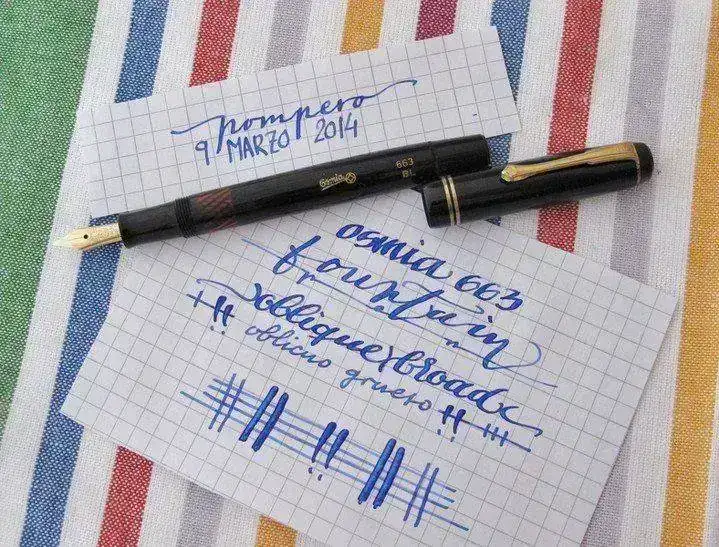 pompero
9 MARZO 2014
Osmia
663
BL
osmia 663
fountain
oblique broad
!!
oblicuo grueso !!
!!